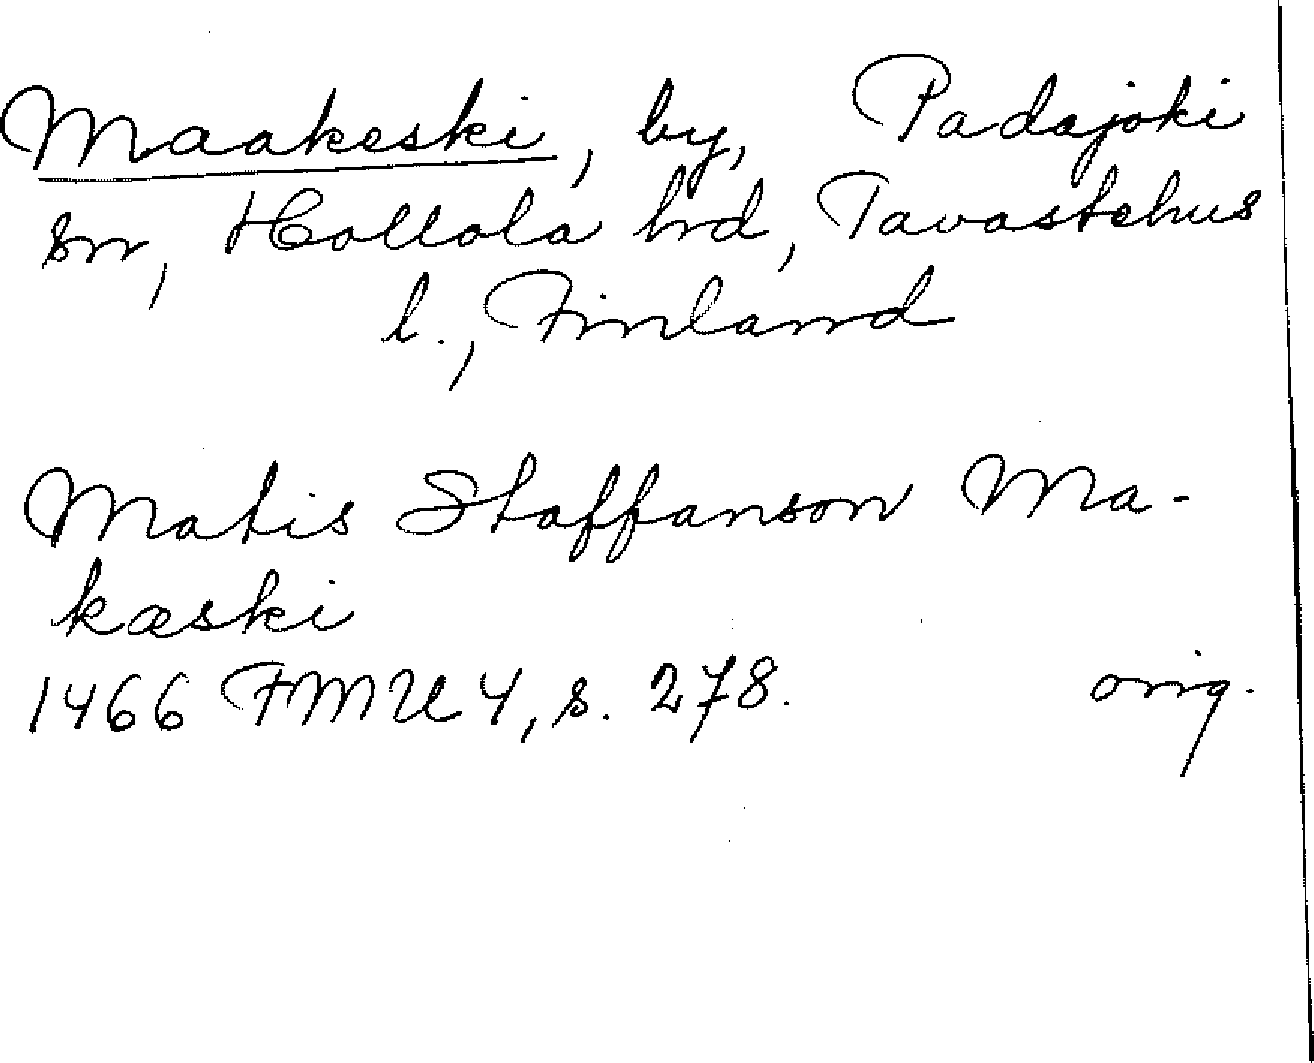 Maakeski, by, Padasjoki
sn, Hollola hd, Tavastehus
l., Finland
Matis Staffanson Ma-
kæski
1466 FMU 4, s. 278. orig.